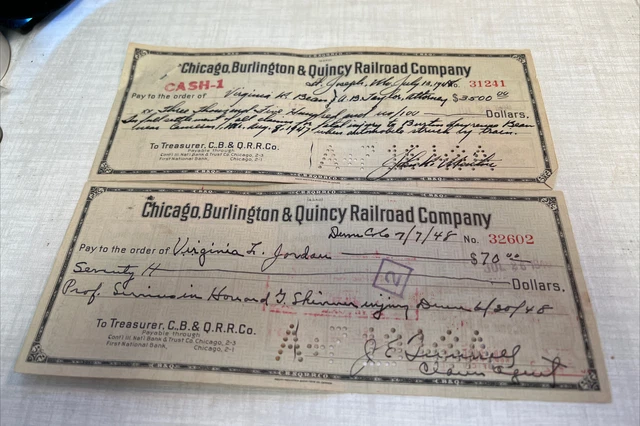 Chicago, Burlington & Quincy Railroad Company
St. Joseph, Mo. July 12, 1948 No. 31241
CASH-1
Pay to the order of Virginia M. Bean & A.B. Taylor, Attorney $3500 00
or three thousand five hundred and no/100 Dollars,
In full settlement of all claims for fatal injury to Bean
near Cameron, Mo. Aug. 8, 1947, when automobile struck by train.
To Treasurer, C.B. & Q.R.R.Co.
Payable through
Cont'l Ill. Nat'l Bank & Trust Co. Chicago, 2-3
First National Bank, Chicago, 2-1
Chicago, Burlington & Quincy Railroad Company
Denv Colo 7/7/48 No. 32602
Pay to the order of Virginia L. Jordan $70 00
Seventy Dollars.
Prof. Services in Howard injury Denv 6/20/48
2
To Treasurer, C.B. & Q.R.R.Co.
Payable through
Cont'l Ill. Nat'l Bank & Trust Co. Chicago, 2-3
First National Bank, Chicago, 2-1
Claim Agent